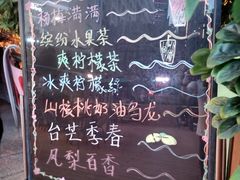 杨梅满满
缤纷水果茶
爽柠檬茶
冰爽柠檬绿
山核桃奶油乌龙
台芒季春
凤梨百香